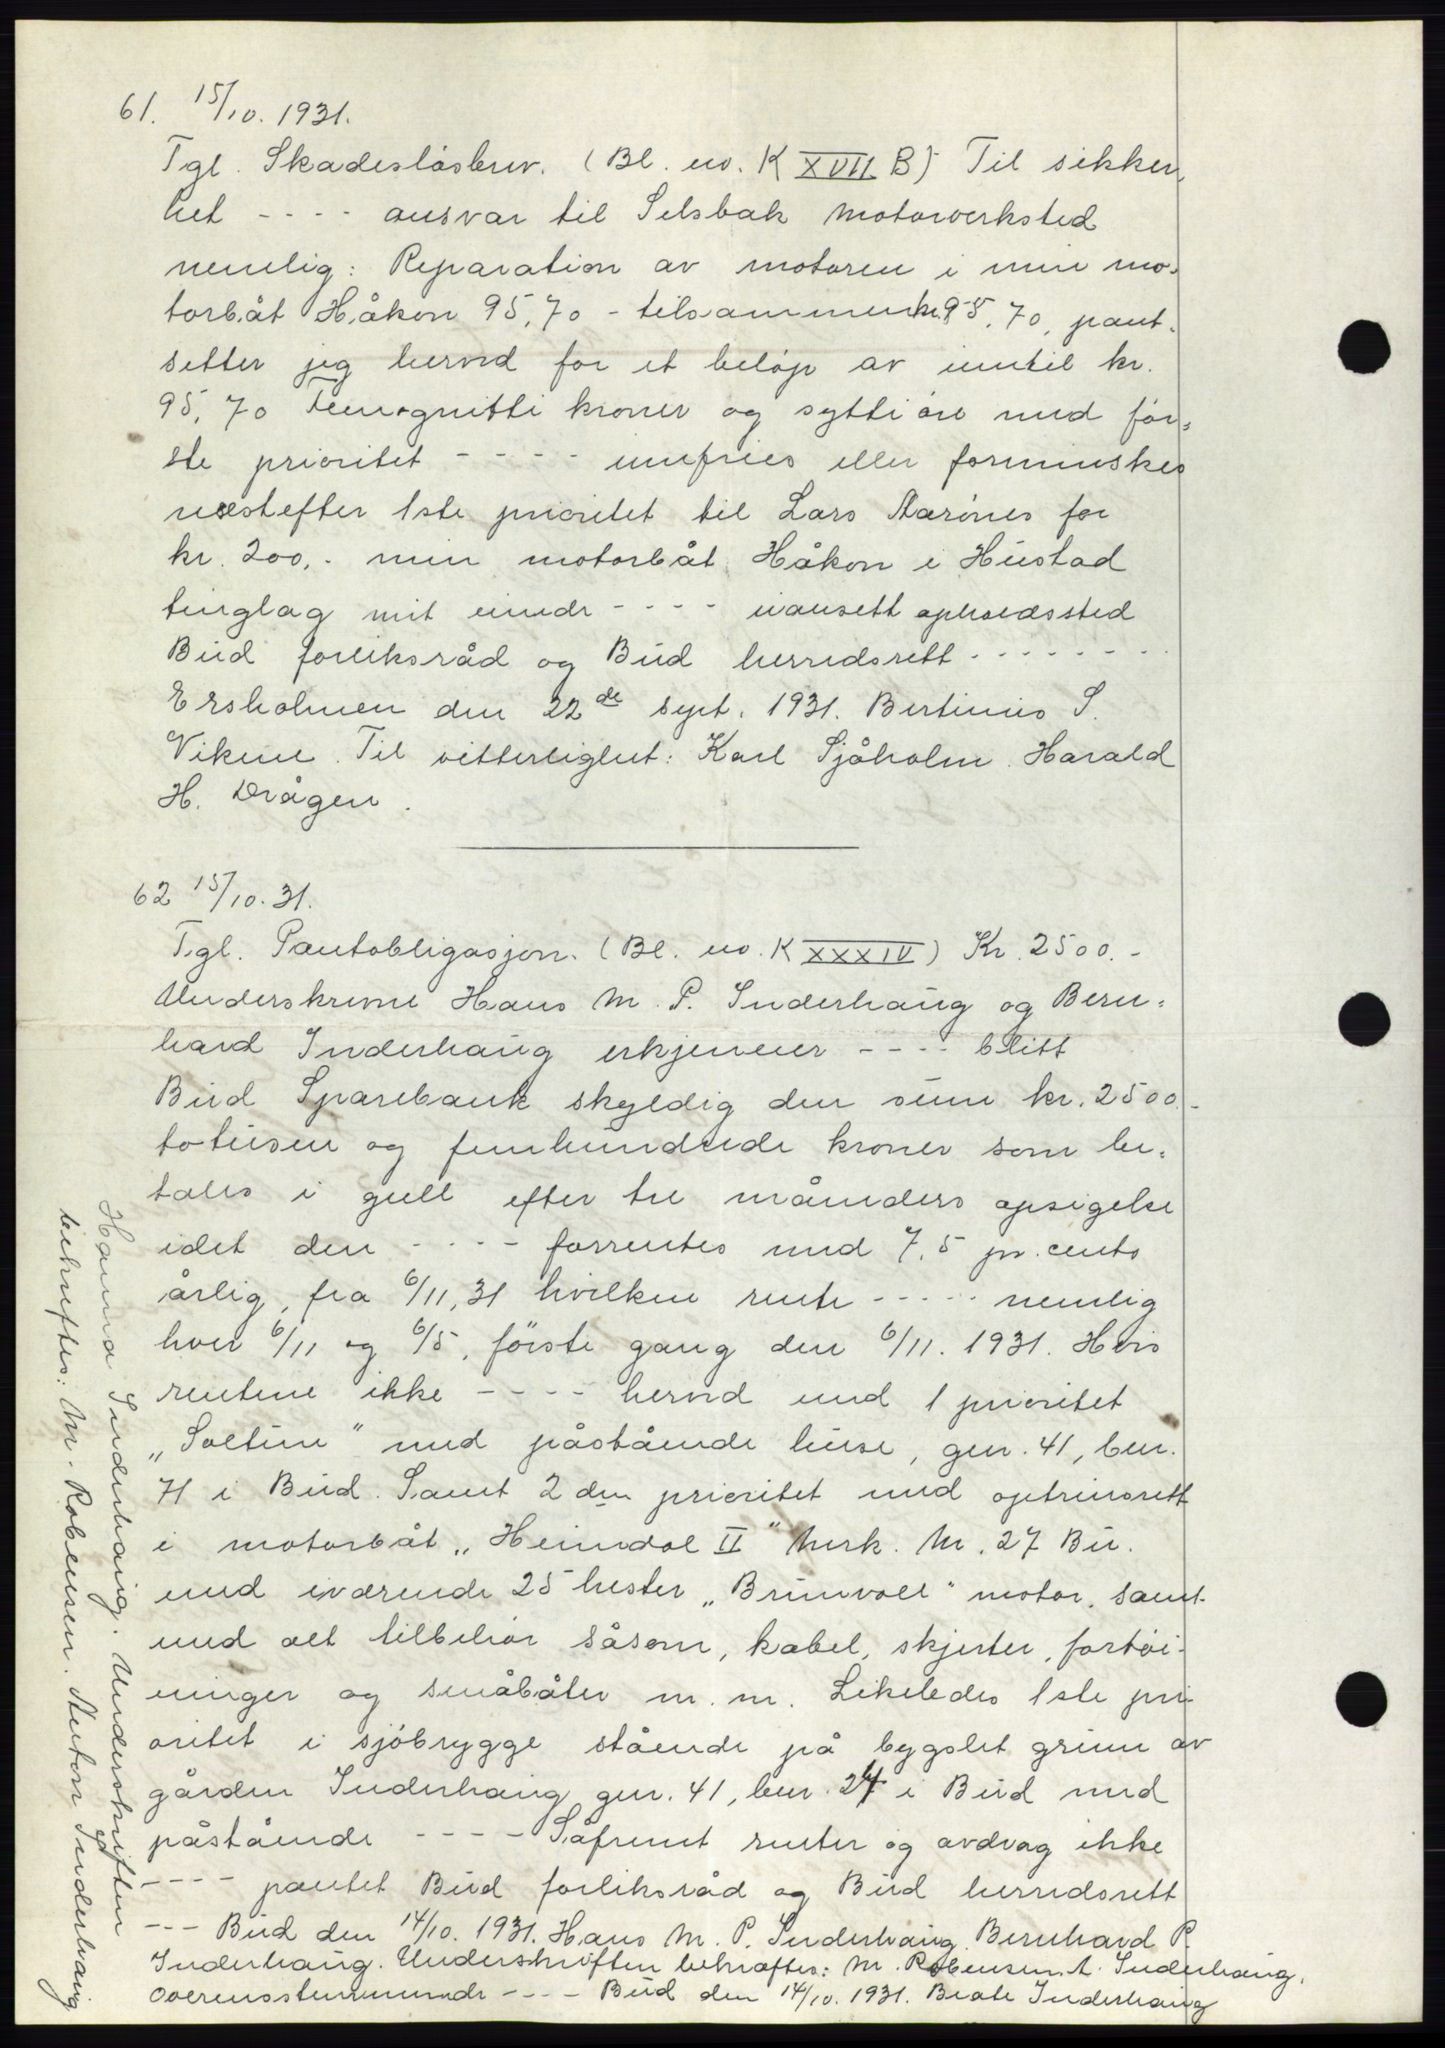 61. 15/10. 1931.
Tgl. Skadesløsbrev. (Bl. nv. K XVII B) Til sikker,
het - - - - ansvar til Selsbak Motorverksted
nemlig: Reparation av motoren i min mo,
torbåt Håkon 95,70 - tilsammen kr. 95,70, pant,
setter jeg herved for et beløp av inntil kr.
95,70 Femognitti kroner og sytti øre med før,
ste prioritet - - - - innfries eller forminskes
næstefter 1ste prioritet til Lars Aarønes for
kr. 200,- min motorbåt Håkon i Hustad
tinglag mit eiende - - - - uansett opholdssted
Bud forliksråd og Bud herredsrett - - - - - - - -
Ersholmen den 22de sept. 1931. Bertinius S.
Vikene. Til vitterlighet: Karl Sjåholm. Harald
H. Drågen.
62 15/10. 31.
Tgl. Pantobligasjon. (Bl. nv. K XXXIV) Kr. 2500.-
Underskrevne Hans M. P. Inderhaug og Bern,
hard Inderhaug erkjenner - - - - blitt
Bud Sparebank skyldig den sum kr. 2500.-
totusen og femhundrede kroner som be,
tales i gull efter tre måneders opsigelse
idet den - - - - forrentes med 7,5 pr. cents
årlig, fra 6/11,31 hvilken rente - - - - - nemlig
hver 6/11 og 6/5, første gang den 6/11. 1931. Hvis
rentene ikke - - - - herved med 1 prioritet
„Soltun" med påstående huse, gnr. 41, bnr.
71 i Bud. Samt 2den prioritet med optrinsrett
i motorbåt „Heimdal II" Merk. M. 27 Bu.
med iværende 25 hester „Brunvoll" motor, samt
med alt tilbehør såsom, kabel, skjerter, fortøi-
ninger og småbåter m. m. Likeledes 1ste pri
oritet i sjøbrygge stående på bygslet grunn av
gården Inderhaug gnr. 41, bnr. 24 i Bud med
påstående - - - - Såfremt renter og avdrag ikke
- - - - pantet Bud forliksråd og Bud herredsrett
- - - Bud den 14/10. 1931. Hans M. P. Inderhaug. Bernhard P.
Inderhaug. Underskriften bekræftes: M. Robensen. A. Inderhaug.
Overensstemmende - - - - Bud den 14/10. 1931. Beate Inderhaug
Hanna Inderhaug. Underskriften
bekreftes: M. Robensen. Anton Inderhaug